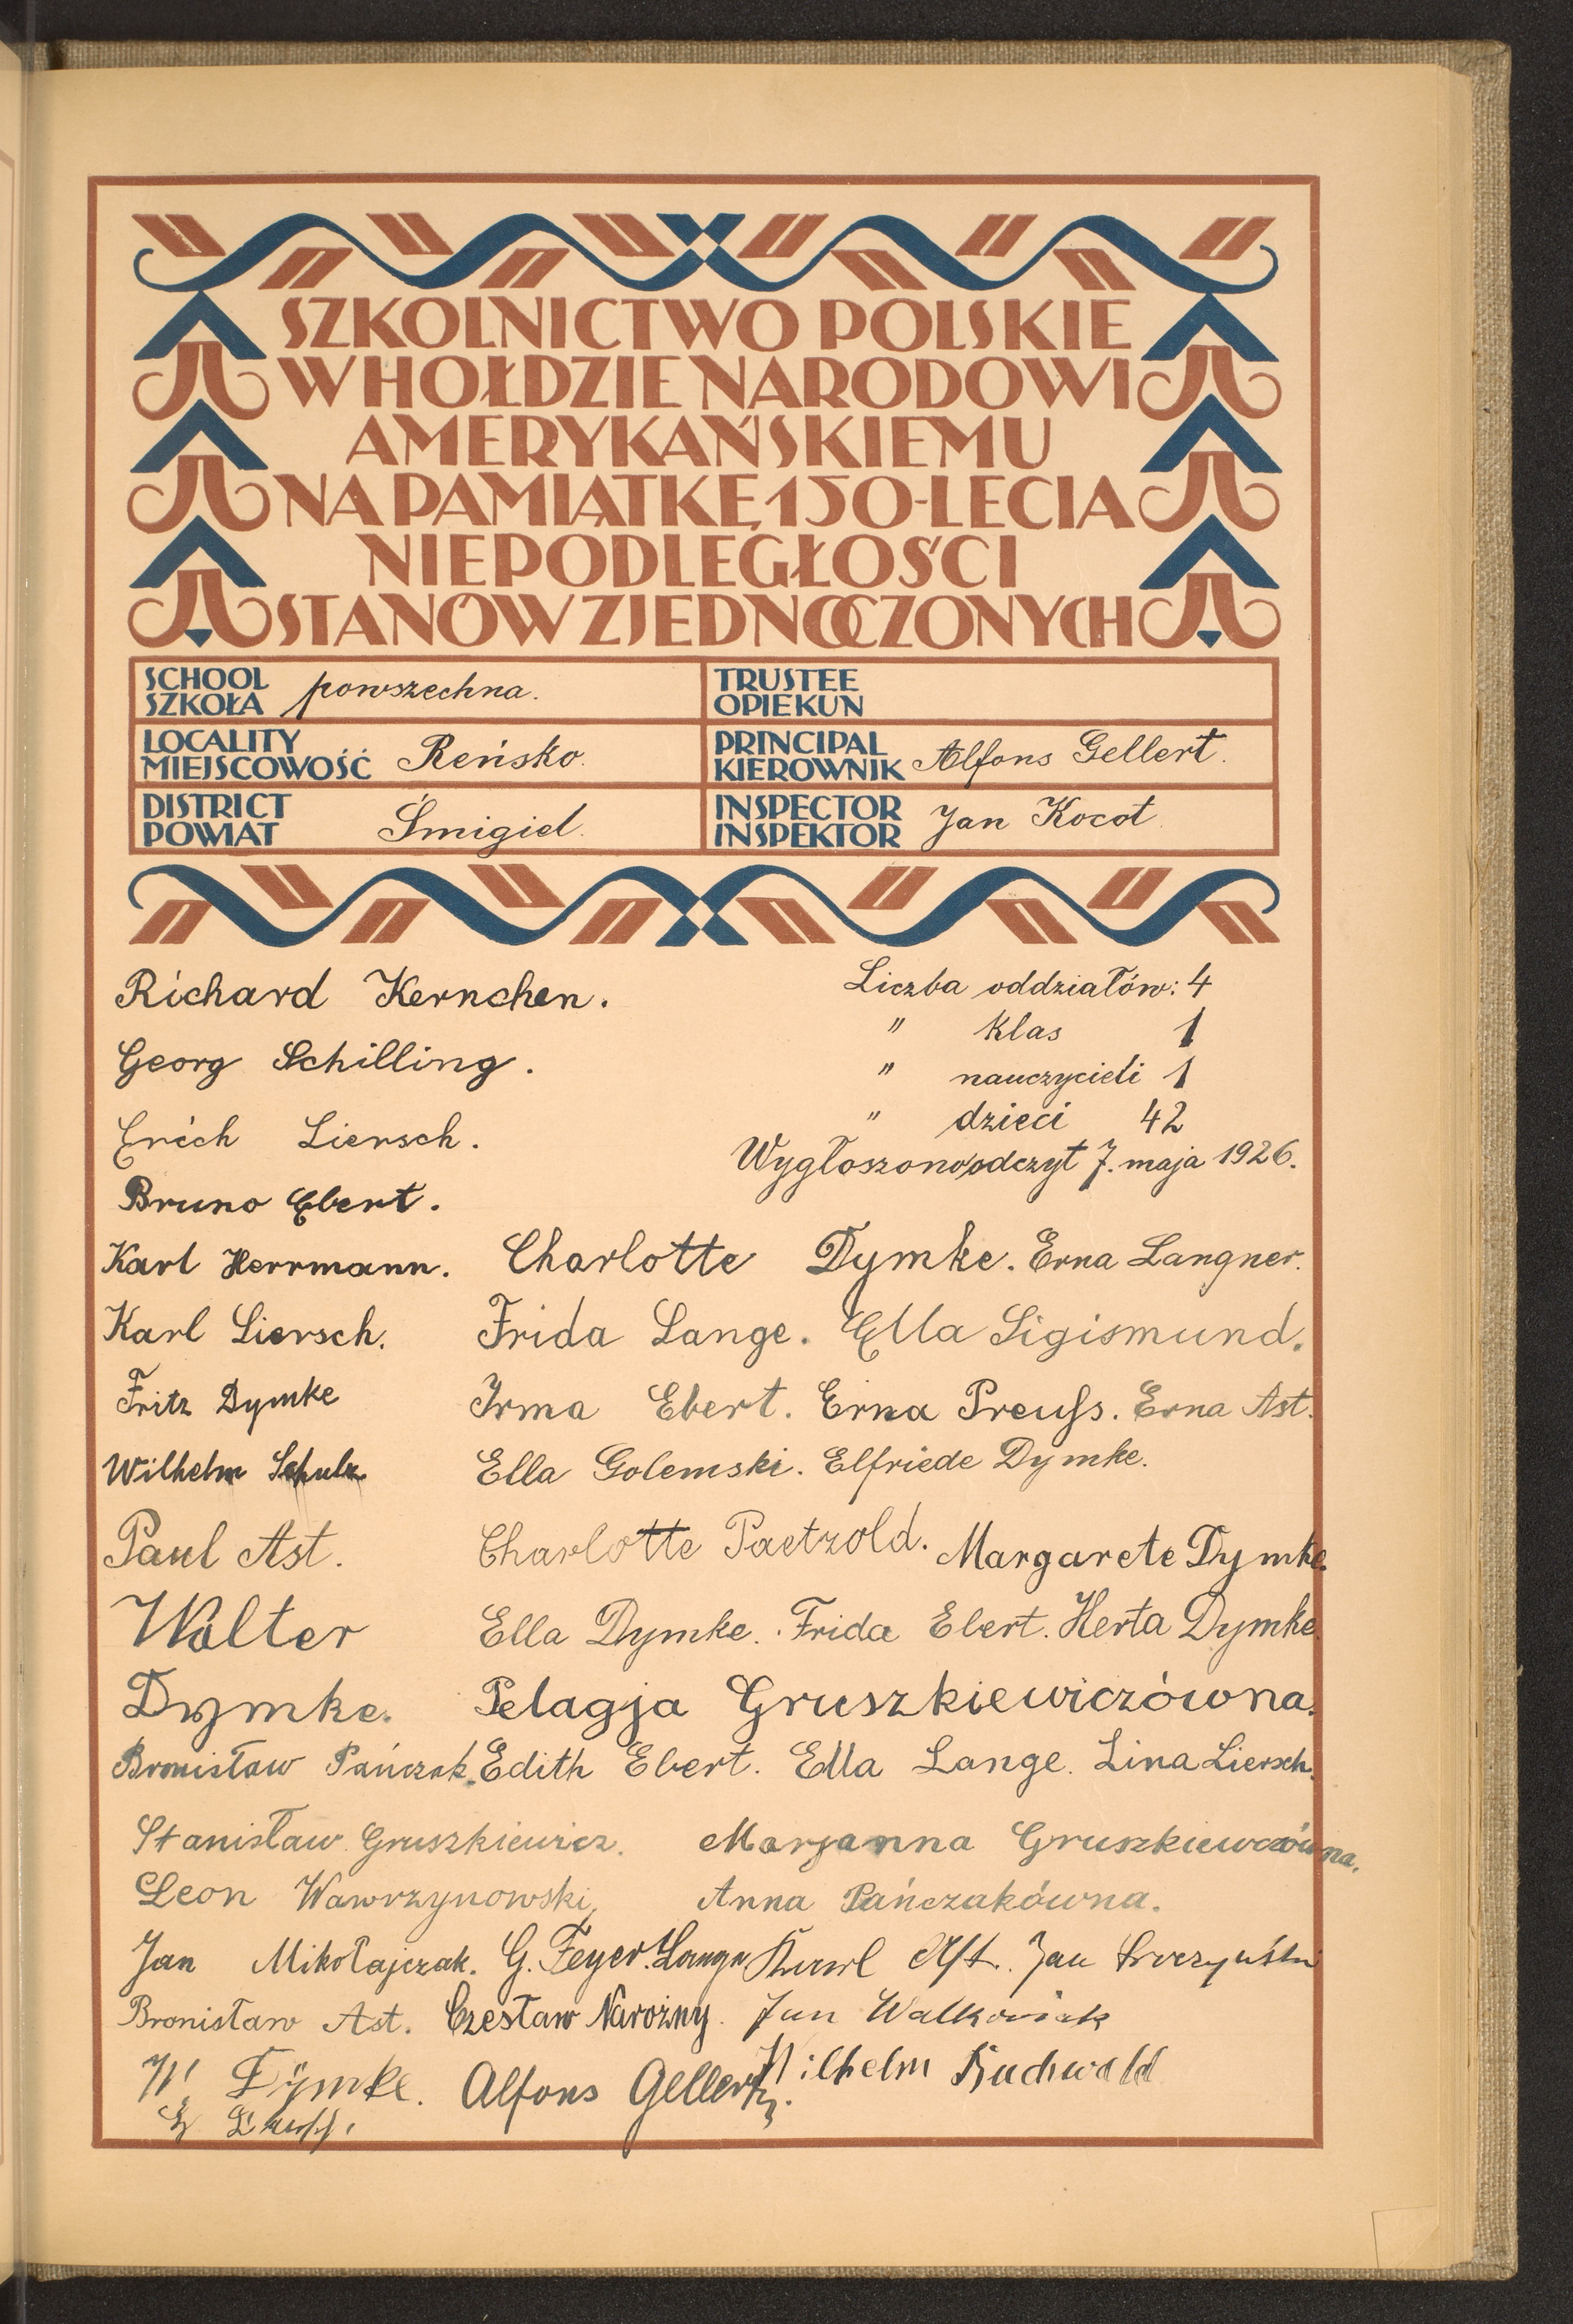 SZKOLNICTWO POLSKIE
W HOŁDZIE NARODOWI
AMERYKAŃSKIEMU
NA PAMIĄTKĘ 150-LECIA
NIEPODLEGŁOŚCI
STANÓW ZJEDNOCZONYCH
SCHOOL
SZKOŁA powszechna.
TRUSTEE
OPIEKUN
LOCALITY
MIEJSCOWOŚĆ Reńsko.
PRINCIPAL
KIEROWNIK Alfons Gellert.
DISTRICT
POWIAT Śmigiel.
INSPECTOR
INSPEKTOR Jan Kocot.
Richard Kernchen.
Liczba oddziałów: 4
" klas 1
Georg Schilling.
" nauczycieli 1
" dzieci 42
Erich Liersch.
Wygłoszono odczyt 7. maja 1926.
Bruno Ebert.
Karl Herrmann. Charlotte Dymke. Erna Langner.
Karl Liersch. Frida Lange. Ella Sigismund.
Fritz Dymke Irma Ebert. Erna Preuſs. Erna Ast.
Wilhelm Schulz Ella Golemski. Elfriede Dymke.
Paul Ast. Charlotte Paetzold. Margarete Dymke.
Walter Ella Dymke. Frida Ebert. Herta Dymke.
Dymke. Pelagja Gruszkiewiczówna.
Bronisław Pańczak. Edith Ebert. Ella Lange. Lina Liersch.
Stanisław Gruszkiewicz. Marjanna Gruszkiewczówna.
Leon Wawrzynowski, Anna Pańczakówna.
Jan Mikołajczak. G. Feyer. Lange Karl Ast. Jan
Bronisław Ast. Czesław Narożny. Jan Walkowiak
W. Dymke. Alfons Gellert. Wilhelm Buchwald